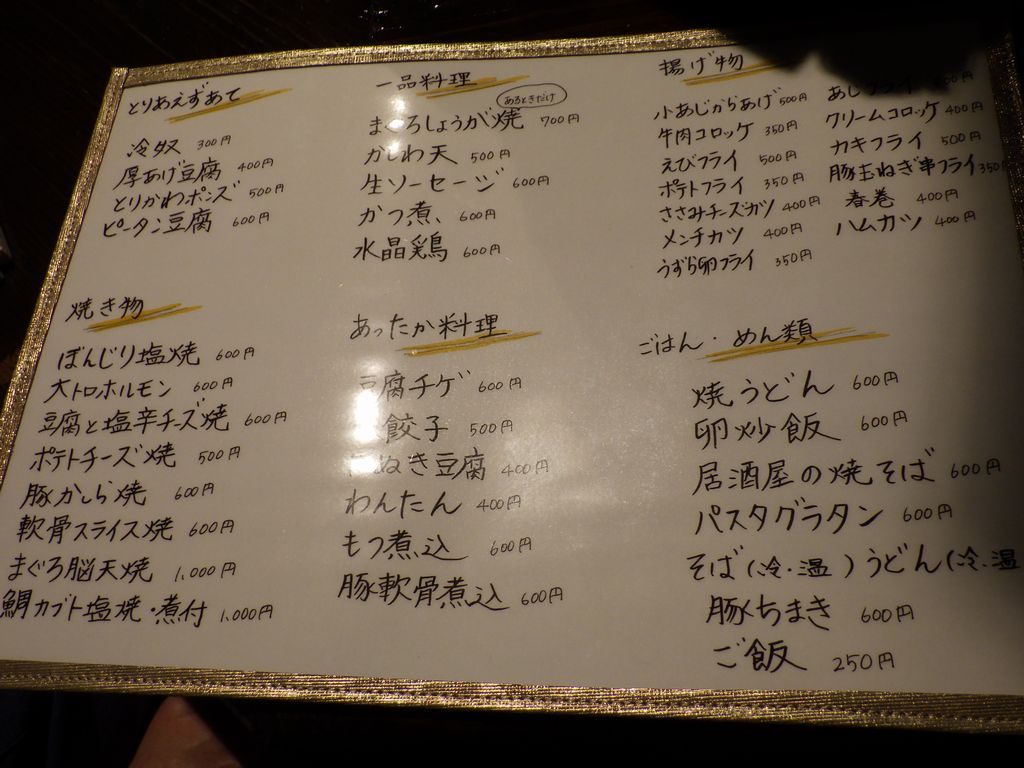 とりあえずあて
冷奴 300円
厚あげ豆腐 400円
とりかわポンズ 500円
ピータン豆腐 600円
一品料理
あるときだけ
まぐろしょうが焼 700円
かしわ天 500円
生ソーセージ 600円
かつ煮 600円
水晶鶏 600円
揚げ物
小あじからあげ 500円
牛肉コロッケ 350円
えびフライ 500円
ポテトフライ 350円
ささみチーズカツ 400円
メンチカツ 400円
うずら卵フライ 350円
あじフライ
クリームコロッケ 400円
カキフライ 500円
豚玉ねぎ串フライ 350
春巻 400円
ハムカツ 400円
焼き物
ぼんじり塩焼 600円
大トロホルモン 600円
豆腐と塩辛チーズ焼 600円
ポテトチーズ焼 500円
豚かしら焼 600円
軟骨スライス焼 600円
まぐろ脳天焼 1,000円
鯛カブト塩焼・煮付 1,000円
あったか料理
豆腐チゲ 600円
餃子 500円
ぬき豆腐 400円
わんたん 400円
もつ煮込 600円
豚軟骨煮込 600円
ごはん・めん類
焼うどん 600円
卵炒飯 600円
居酒屋の焼そば 600円
パスタグラタン 600円
そば(冷・温)うどん(冷・温
豚ちまき 600円
ご飯 250円